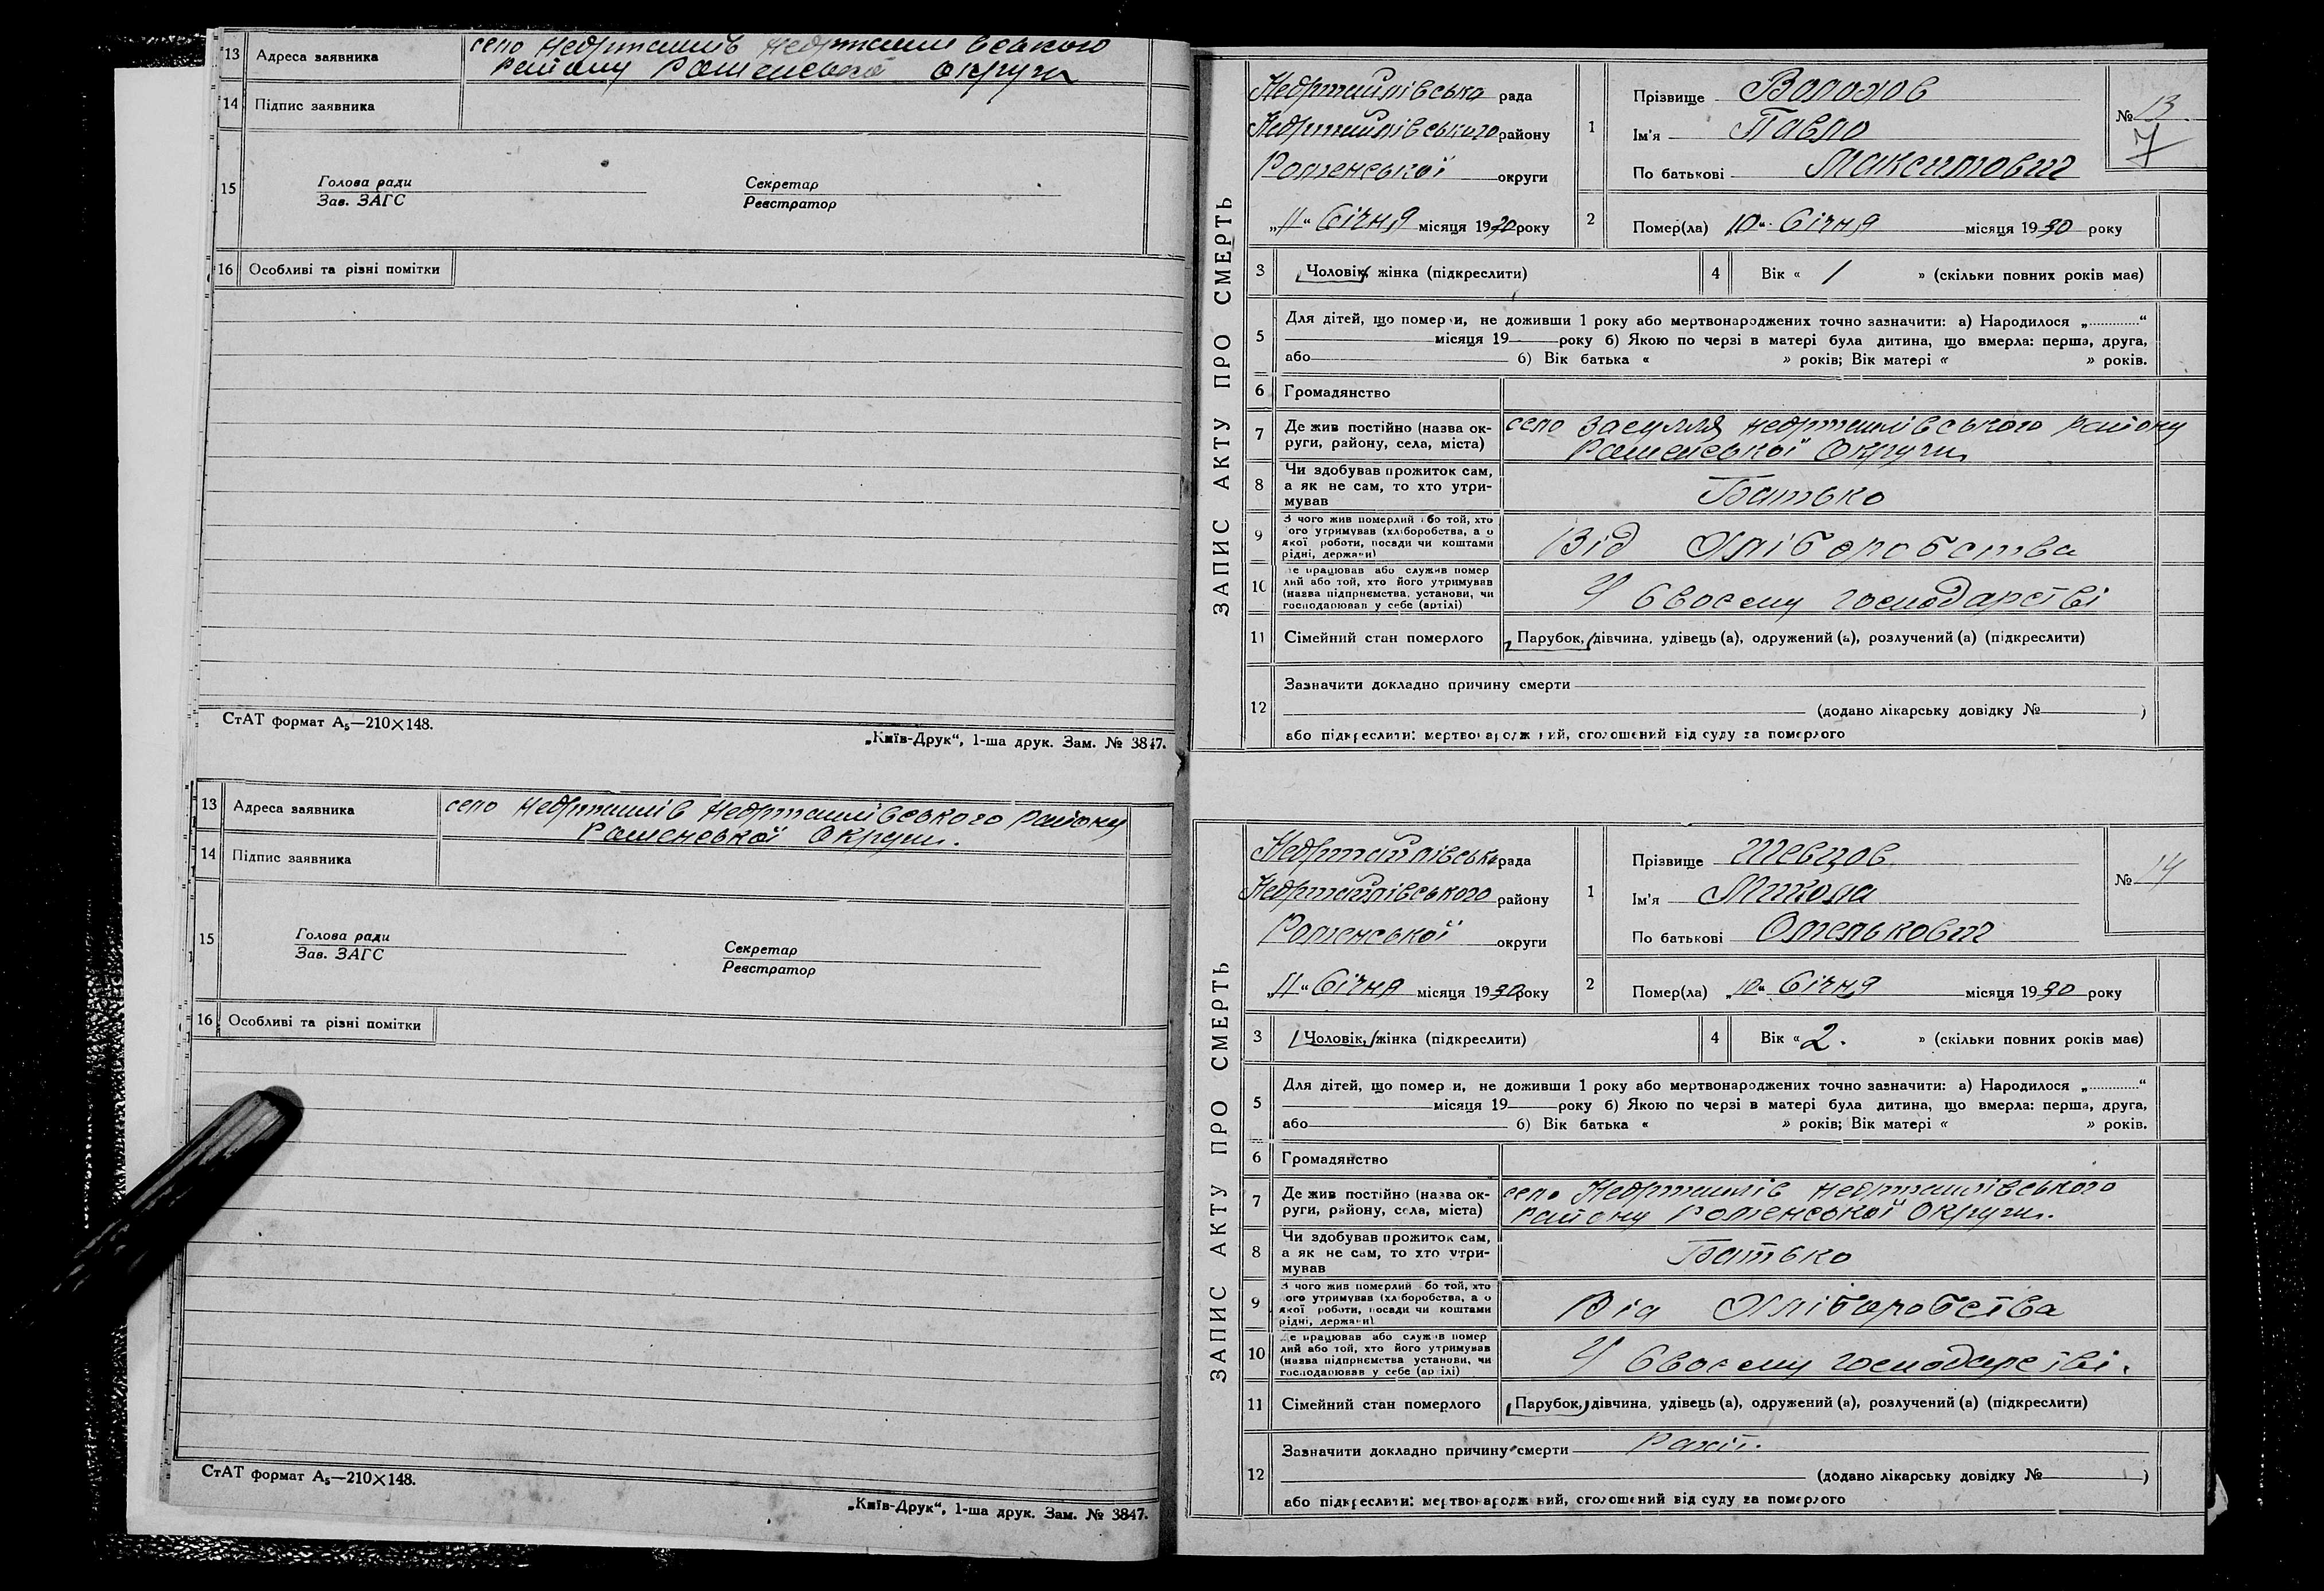 13 Адреса заявника село Недригайлів Недригайлівського
району Роменської округи
14 Підпис заявника
15 Голова ради Секретар
Зав. ЗАГС Реєстратор
16 Особливі та різні помітки
СтАТ формат А₅—210×148.
„Київ-Друк“, 1-ша друк. Зам. № 3847.
13 Адреса заявника село Недригайлів Недригайлівського району
Роменської Округи.
14 Підпис заявника
15 Голова ради Секретар
Зав. ЗАГС Реєстратор
16 Особливі та різні помітки
СтАТ формат А₅—210×148.
„Київ-Друк“, 1-ша друк. Зам. № 3847.
ЗАПИС АКТУ ПРО СМЕРТЬ
Недригайлівська рада
Недригайлівського району
Роменської округи
„11“ Січня місяця 1930 року
1 Прізвище Волохов
Ім'я Павло
По батькові Максимович
№ 13
7
2 Помер(ла) „10“ Січня місяця 1930 року
3 Чоловік, жінка (підкреслити) 4 Вік « 1 » (скільки повних років має)
5 Для дітей, що померли, не доживши 1 року або мертвонароджених точно зазначити: а) Народилося „............“
місяця 19 року б) Якою по черзі в матері була дитина, що вмерла: перша, друга,
або б) Вік батька « » років; Вік матері « » років.
6 Громадянство
7 Де жив постійно (назва ок- село Засулля Недригайлівського району
руги, району, села, міста) Роменської Округи
8 Чи здобував прожиток сам,
а як не сам, то хто утри- Батько
мував
9 З чого жив померлий або той, хто
його утримував (хліборобства, а о
якої роботи, посади чи коштами Від Хліборобства
рідні, держави)
10 Де працював або служив помер
лий або той, хто його утримував
(назва підприємства, установи, чи У Свосему господарстві
господарював у себе (артілі)
11 Сімейний стан померлого Парубок, дівчина, удівець (а), одружений (а), розлучений (а) (підкреслити)
12 Зазначити докладно причину смерти
(додано лікарську довідку № )
або підкреслити: мертвонароджений, оголошений від суду за померлого
ЗАПИС АКТУ ПРО СМЕРТЬ
Недригайлівська рада
Недригайлівського району
Роменської округи
„11“ Січня місяця 1930 року
1 Прізвище Шевцов
Ім'я Микола
По батькові Омелькович
№ 14
2 Помер(ла) „10“ Січня місяця 1930 року
3 Чоловік, жінка (підкреслити) 4 Вік « 2. » (скільки повних років має)
5 Для дітей, що померли, не доживши 1 року або мертвонароджених точно зазначити: а) Народилося „............“
місяця 19 року б) Якою по черзі в матері була дитина, що вмерла: перша, друга,
або б) Вік батька « » років; Вік матері « » років.
6 Громадянство
7 Де жив постійно (назва ок- село Недригайлів Недригайлівського
руги, району, села, міста) району Роменської Округи.
8 Чи здобував прожиток сам,
а як не сам, то хто утри- Батько
мував
9 З чого жив померлий або той, хто
його утримував (хліборобства, а о
якої роботи, посади чи коштами Від Хліборобства
рідні, держави)
10 Де працював або служив помер
лий або той, хто його утримував
(назва підприємства установи, чи У Свосему господарстві.
господарював у себе (артілі)
11 Сімейний стан померлого Парубок, дівчина, удівець (а), одружений (а), розлучений (а) (підкреслити)
12 Зазначити докладно причину смерти
(додано лікарську довідку № )
або підкреслити: мертвонароджений, оголошений від суду за померлого